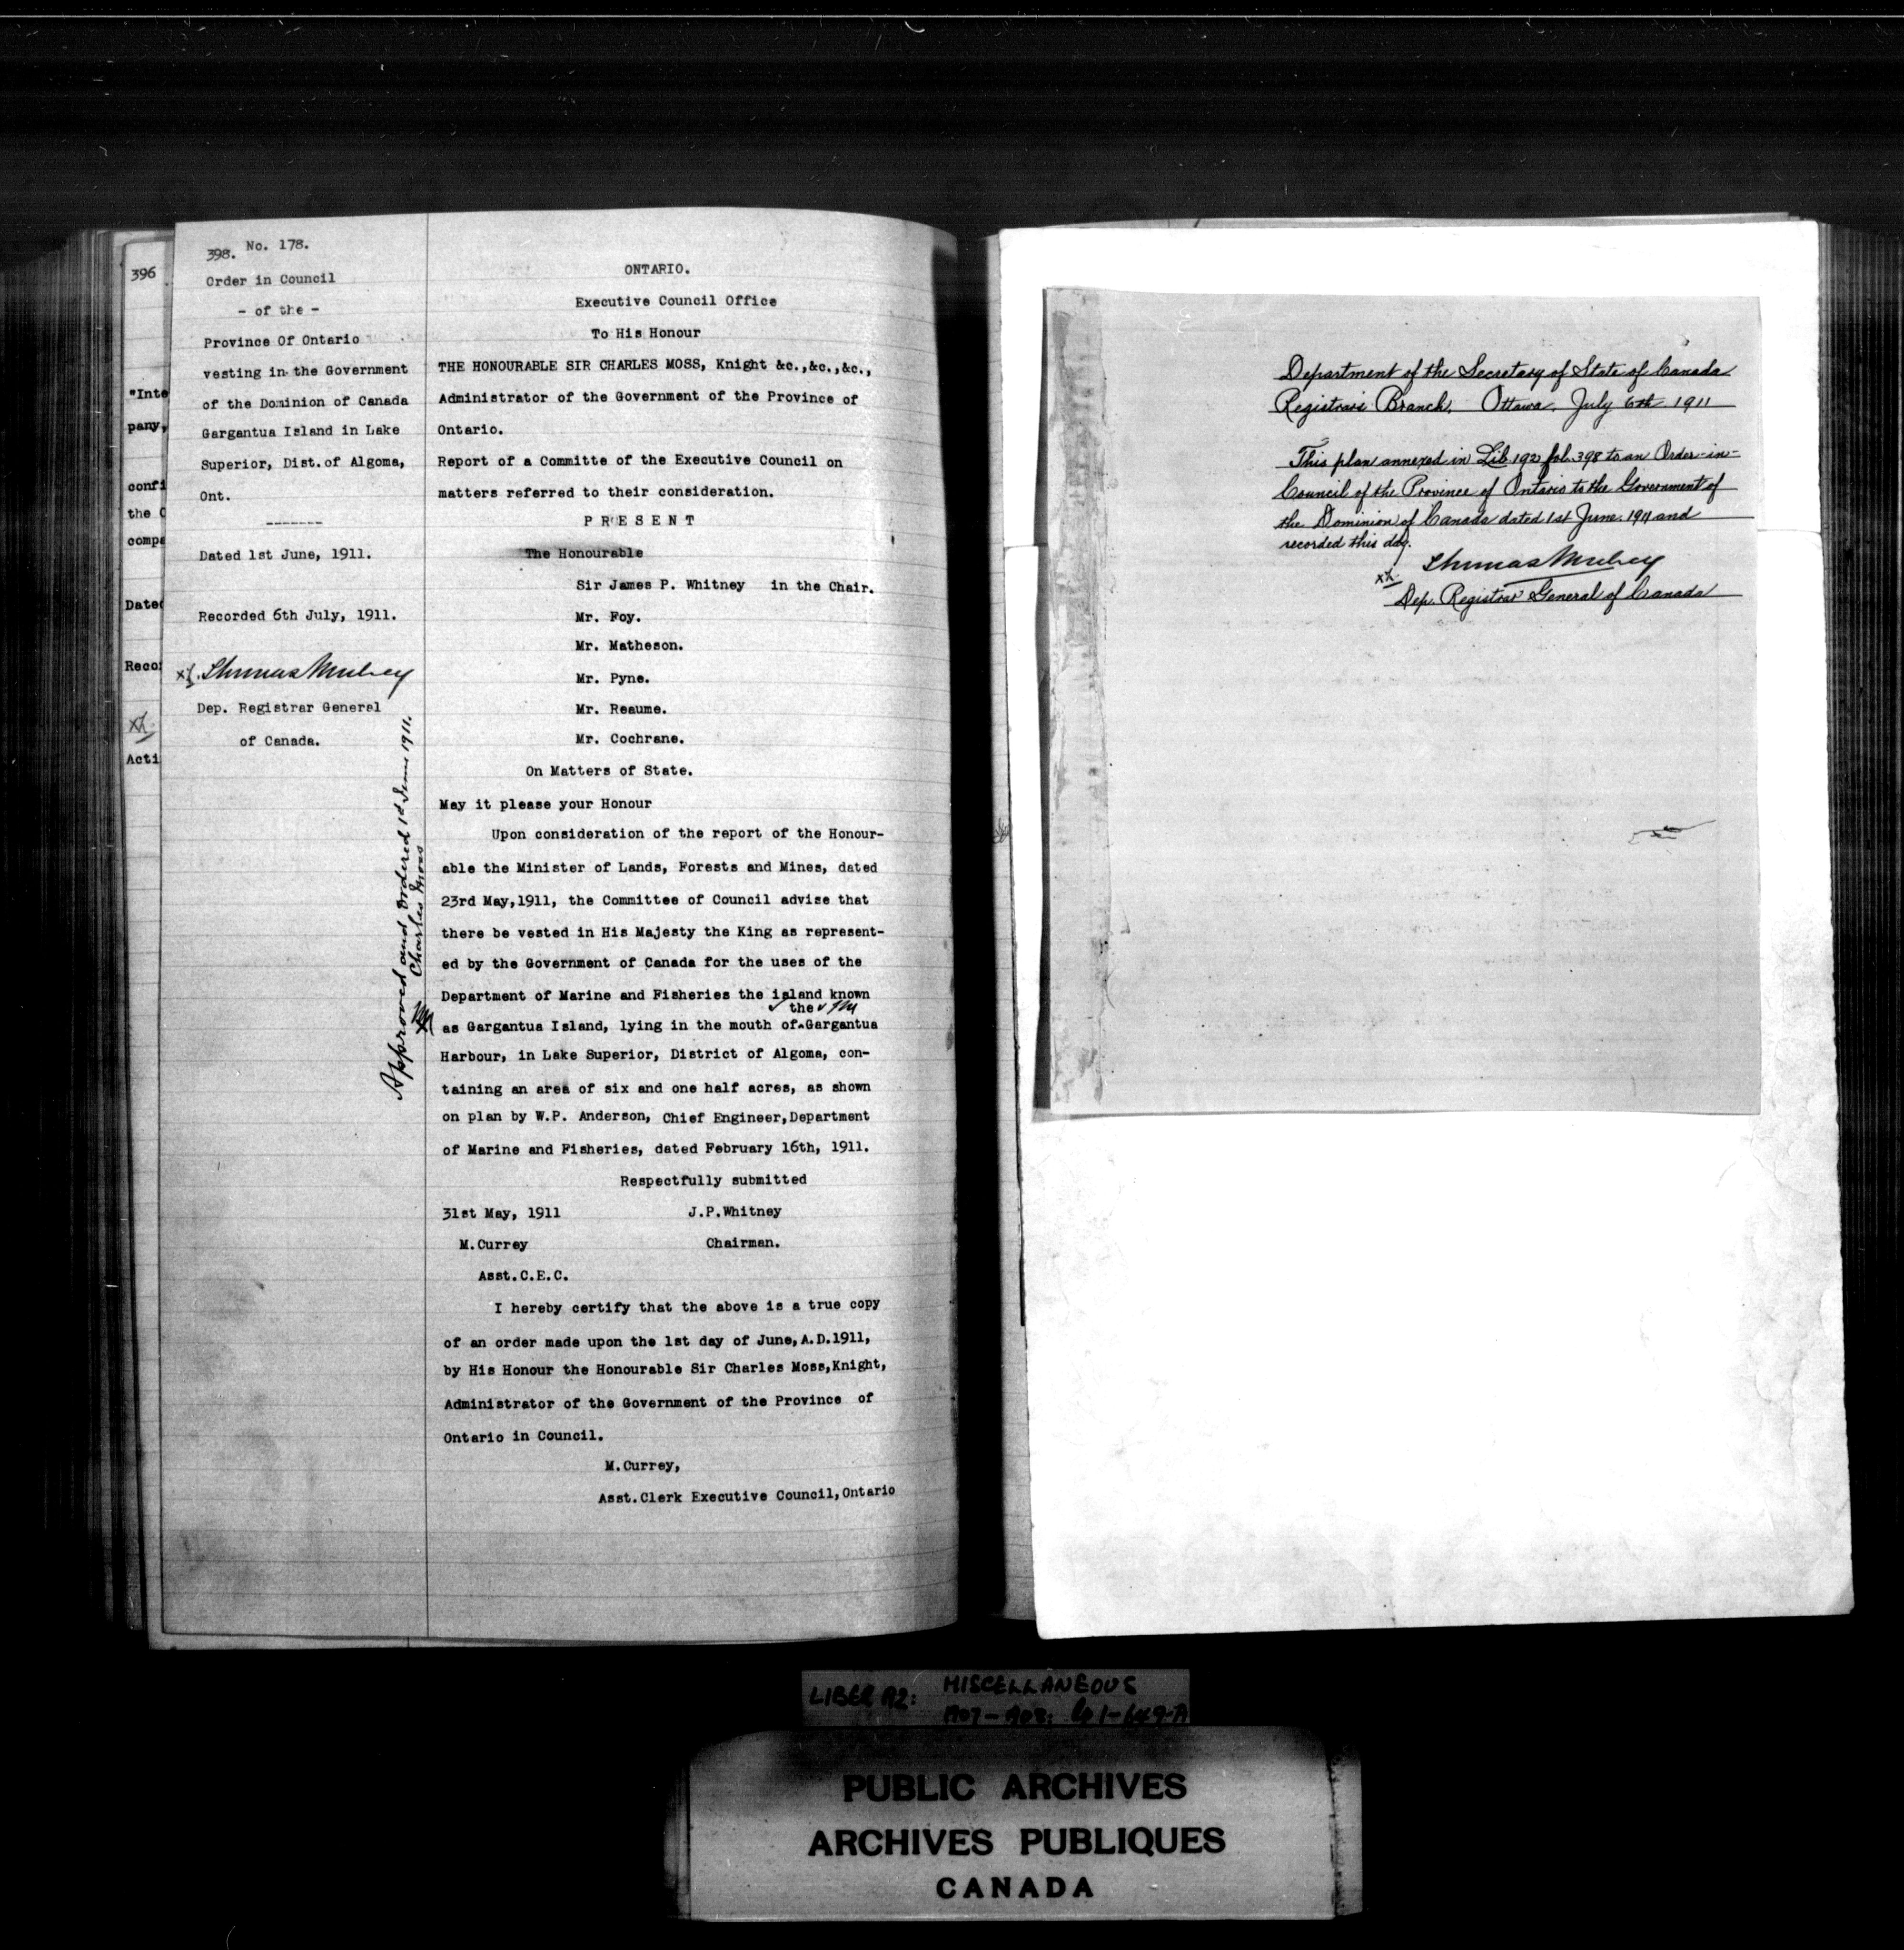 396
"Inte
pany,
confi
the C
compa
Dated
Reco
Acti
398. No. 178.
Order in Council
- of the -
Province Of Ontario
vesting in the Government
of the Dominion of Canada
Gargantua Island in Lake
Superior, Dist.of Algoma,
Ont.
-------
Dated 1st June, 1911.
Recorded 6th July, 1911.
Thomas Mulvey
Dep. Registrar General
of Canada.
Approved and Ordered 1st June 1911.
Charles Moss
ONTARIO.
Executive Council Office
To His Honour
THE HONOURABLE SIR CHARLES MOSS, Knight &c.,&c.,&c.,
Administrator of the Government of the Province of
Ontario.
Report of a Committe of the Executive Council on
matters referred to their consideration.
P R E S E N T
The Honourable
Sir James P. Whitney in the Chair.
Mr. Foy.
Mr. Matheson.
Mr. Pyne.
Mr. Reaume.
Mr. Cochrane.
On Matters of State.
May it please your Honour
Upon consideration of the report of the Honour-
able the Minister of Lands, Forests and Mines, dated
23rd May,1911, the Committee of Council advise that
there be vested in His Majesty the King as represent-
ed by the Government of Canada for the uses of the
Department of Marine and Fisheries the island known
the
as Gargantua Island, lying in the mouth of^Gargantua
Harbour, in Lake Superior, District of Algoma, con-
taining an area of six and one half acres, as shown
on plan by W.P. Anderson, Chief Engineer,Department
of Marine and Fisheries, dated February 16th, 1911.
Respectfully submitted
31st May, 1911 J.P.Whitney
M.Currey Chairman.
Asst.C.E.C.
I hereby certify that the above is a true copy
of an order made upon the 1st day of June,A.D.1911,
by His Honour the Honourable Sir Charles Moss,Knight,
Administrator of the Government of the Province of
Ontario in Council.
M.Currey,
Asst.Clerk Executive Council,Ontario
Department of the Secretary of State of Canada
Registrar's Branch. Ottawa, July 6th 1911
This plan annexed in Lib 192 fol. 398 to an Order-in-
Council of the Province of Ontario to the Government of
the Dominion of Canada dated 1st June. 1911 and
recorded this day.
Thomas Mulvey
Dep. Registrar General of Canada
LIBER 192: MISCELLANEOUS
PUBLIC ARCHIVES
ARCHIVES PUBLIQUES
CANADA